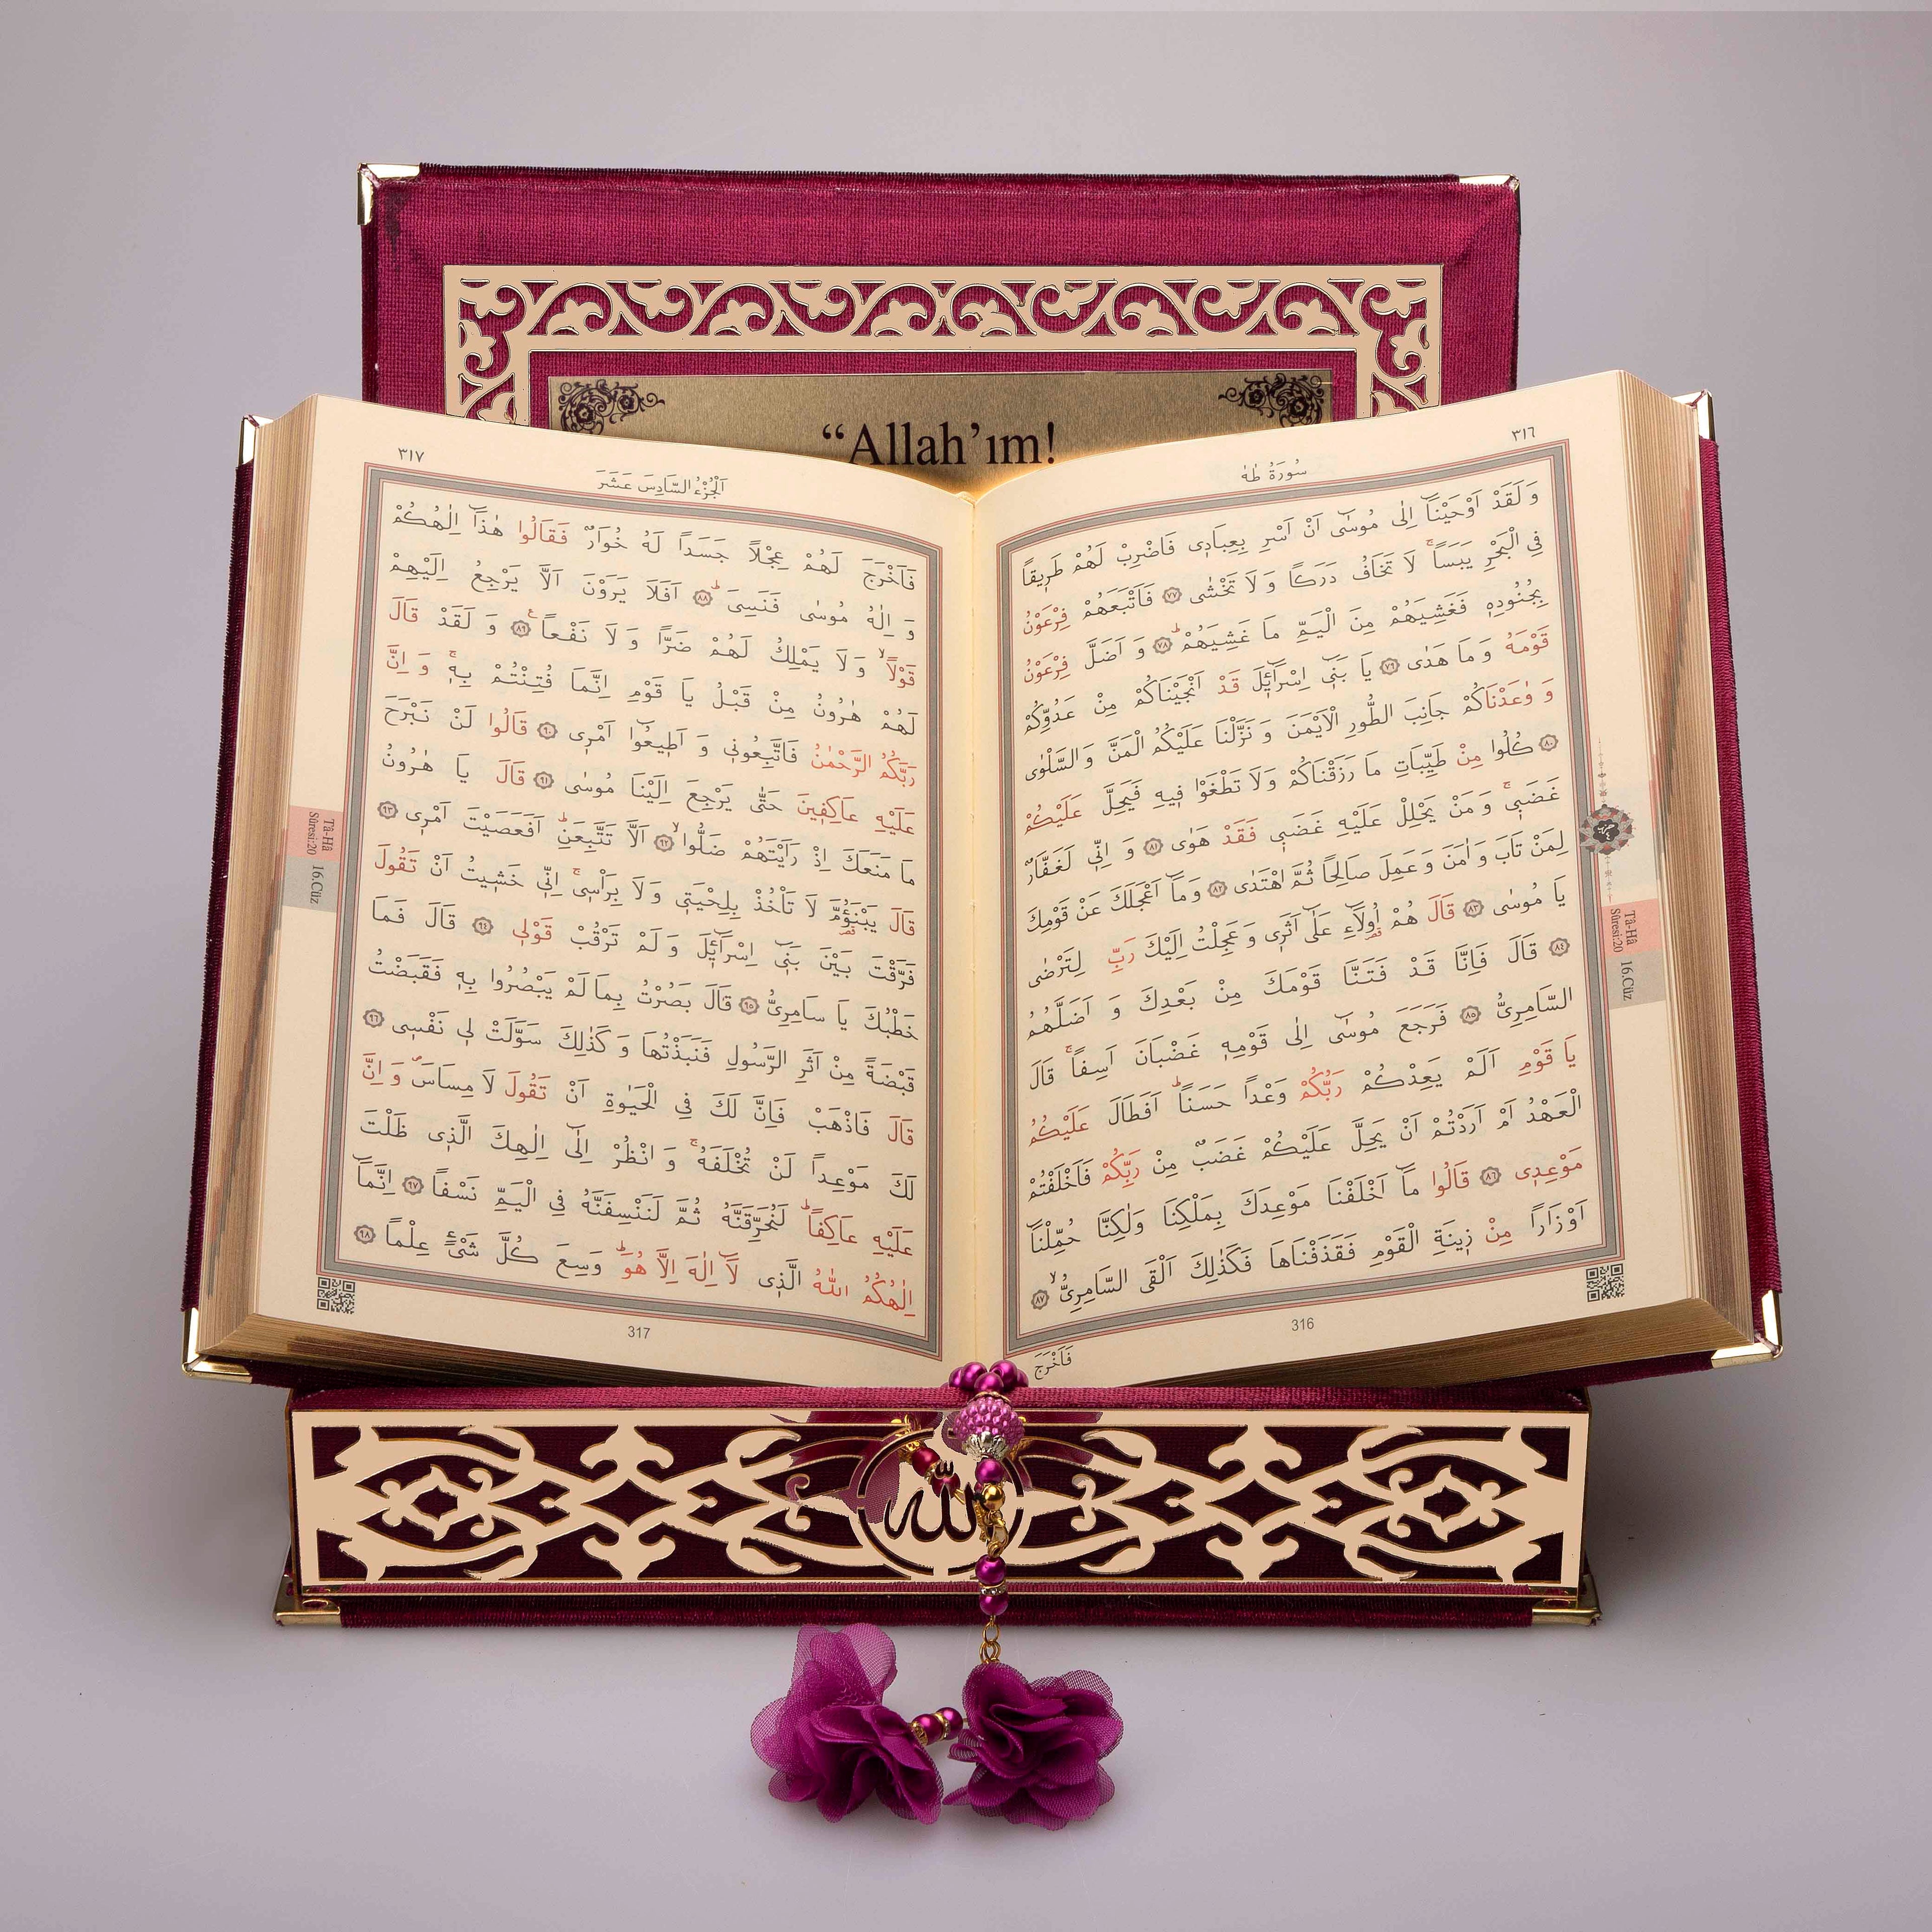 “Allah’ım!
٣١٦
سُورَةُ طٰهٰ
وَ لَقَدْ اَوْحَيْنَٓا اِلٰى مُوسٰٓى اَنْ اَسْرِ بِعِبَادٖى فَاضْرِبْ لَهُمْ طَرٖيقاً
فِي الْبَحْرِ يَبَساًۚ لَا تَخَافُ دَرَكاً وَ لَا تَخْشٰى ﴿٧٧﴾ فَاَتْبَعَهُمْ فِرْعَوْنُ
بِجُنُودِهٖ فَغَشِيَهُمْ مِنَ الْيَمِّ مَا غَشِيَهُمْؕ ﴿٧٨﴾ وَ اَضَلَّ فِرْعَوْنُ
قَوْمَهُ وَ مَا هَدٰى ﴿٧٩﴾ يَا بَنٖٓى اِسْرَٓائٖلَ قَدْ اَنْجَيْنَاكُمْ مِنْ عَدُوِّكُمْ
وَ وٰعَدْنَاكُمْ جَانِبَ الطُّورِ الْاَيْمَنَ وَ نَزَّلْنَا عَلَيْكُمُ الْمَنَّ وَ السَّلْوٰى
﴿٨٠﴾ كُلُوا مِنْ طَيِّبَاتِ مَا رَزَقْنَاكُمْ وَ لَا تَطْغَوْا فٖيهِ فَيَحِلَّ عَلَيْكُمْ
غَضَبٖىۚ وَ مَنْ يَحْلِلْ عَلَيْهِ غَضَبٖى فَقَدْ هَوٰى ﴿٨١﴾ وَ اِنّٖى لَغَفَّارٌ
لِمَنْ تَابَ وَ اٰمَنَ وَ عَمِلَ صَالِحًا ثُمَّ اهْتَدٰى ﴿٨٢﴾ وَ مَٓا اَعْجَلَكَ عَنْ قَوْمِكَ
يَا مُوسٰى ﴿٨٣﴾ قَالَ هُمْ اُولَٓاءِ عَلٰٓى اَثَرٖى وَ عَجِلْتُ اِلَيْكَ رَبِّ لِتَرْضٰى
﴿٨٤﴾ قَالَ فَاِنَّا قَدْ فَتَنَّا قَوْمَكَ مِنْ بَعْدِكَ وَ اَضَلَّهُمُ
السَّامِرِىُّ ﴿٨٥﴾ فَرَجَعَ مُوسٰٓى اِلٰى قَوْمِهٖ غَضْبَانَ اَسِفاًۚ قَالَ
يَا قَوْمِ اَلَمْ يَعِدْكُمْ رَبُّكُمْ وَعْداً حَسَناًؕ اَفَطَالَ عَلَيْكُمُ
الْعَهْدُ اَمْ اَرَدْتُمْ اَنْ يَحِلَّ عَلَيْكُمْ غَضَبٌ مِنْ رَبِّكُمْ فَاَخْلَفْتُمْ
مَوْعِدٖى ﴿٨٦﴾ قَالُوا مَٓا اَخْلَفْنَا مَوْعِدَكَ بِمَلْكِنَا وَلٰكِنَّا حُمِّلْنَٓا
اَوْزَارًا مِنْ زٖينَةِ الْقَوْمِ فَقَذَفْنَاهَا فَكَذٰلِكَ اَلْقَى السَّامِرِىُّۙ ﴿٨٧﴾
316
فَاَخْرَجَ
حزب
٤
Tâ-Hâ
Sûresi:20
16.Cüz
٣١٧
اَلْجُزْءُ السَّادِسَ عَشَرَ
فَاَخْرَجَ لَهُمْ عِجْلاً جَسَداً لَهُ خُوَارٌ فَقَالُوا هٰذَٓا اِلٰهُكُمْ
وَ اِلٰهُ مُوسٰى فَنَسِىَؕ ﴿٨٨﴾ اَفَلَا يَرَوْنَ اَلَّا يَرْجِعُ اِلَيْهِمْ
قَوْلاًۙ وَ لَا يَمْلِكُ لَهُمْ ضَرًّا وَ لَا نَفْعاً ﴿٨٩﴾ وَ لَقَدْ قَالَ
لَهُمْ هٰرُونُ مِنْ قَبْلُ يَا قَوْمِ اِنَّمَا فُتِنْتُمْ بِهٖۚ وَ اِنَّ
رَبَّكُمُ الرَّحْمٰنُ فَاتَّبِعُونٖى وَ اَطٖيعُٓوا اَمْرٖى ﴿٩٠﴾ قَالُوا لَنْ نَبْرَحَ
عَلَيْهِ عَاكِفٖينَ حَتّٰى يَرْجِعَ اِلَيْنَا مُوسٰى ﴿٩١﴾ قَالَ يَا هٰرُونُ
مَا مَنَعَكَ اِذْ رَاَيْتَهُمْ ضَلُّٓواۙ ﴿٩٢﴾ اَلَّا تَتَّبِعَنِؕ اَفَعَصَيْتَ اَمْرٖى ﴿٩٣﴾
قَالَ يَبْنَؤُمَّ لَا تَأْخُذْ بِلِحْيَتٖى وَ لَا بِرَأْسٖىۚ اِنّٖى خَشٖيتُ اَنْ تَقُولَ
فَرَّقْتَ بَيْنَ بَنٖٓى اِسْرَٓائٖلَ وَ لَمْ تَرْقُبْ قَوْلٖى ﴿٩٤﴾ قَالَ فَمَا
خَطْبُكَ يَا سَامِرِىُّ ﴿٩٥﴾ قَالَ بَصُرْتُ بِمَا لَمْ يَبْصُرُوا بِهٖ فَقَبَضْتُ
قَبْضَةً مِنْ اَثَرِ الرَّسُولِ فَنَبَذْتُهَا وَ كَذٰلِكَ سَوَّلَتْ لٖى نَفْسٖى ﴿٩٦﴾
قَالَ فَاذْهَبْ فَاِنَّ لَكَ فِي الْحَيٰوةِ اَنْ تَقُولَ لَا مِسَاسَ وَ اِنَّ
لَكَ مَوْعِداً لَنْ تُخْلَفَهُۚ وَ انْظُرْ اِلٰٓى اِلٰهِكَ الَّذٖى ظَلْتَ
عَلَيْهِ عَاكِفاًؕ لَنُحَرِّقَنَّهُ ثُمَّ لَنَنْسِفَنَّهُ فِي الْيَمِّ نَسْفاً ﴿٩٧﴾ اِنَّمَٓا
اِلٰهُكُمُ اللّٰهُ الَّذٖى لَٓا اِلٰهَ اِلَّا هُوَؕ وَسِعَ كُلَّ شَىْءٍ عِلْماً ﴿٩٨﴾
317
Tâ-Hâ
Sûresi:20
16.Cüz
الله